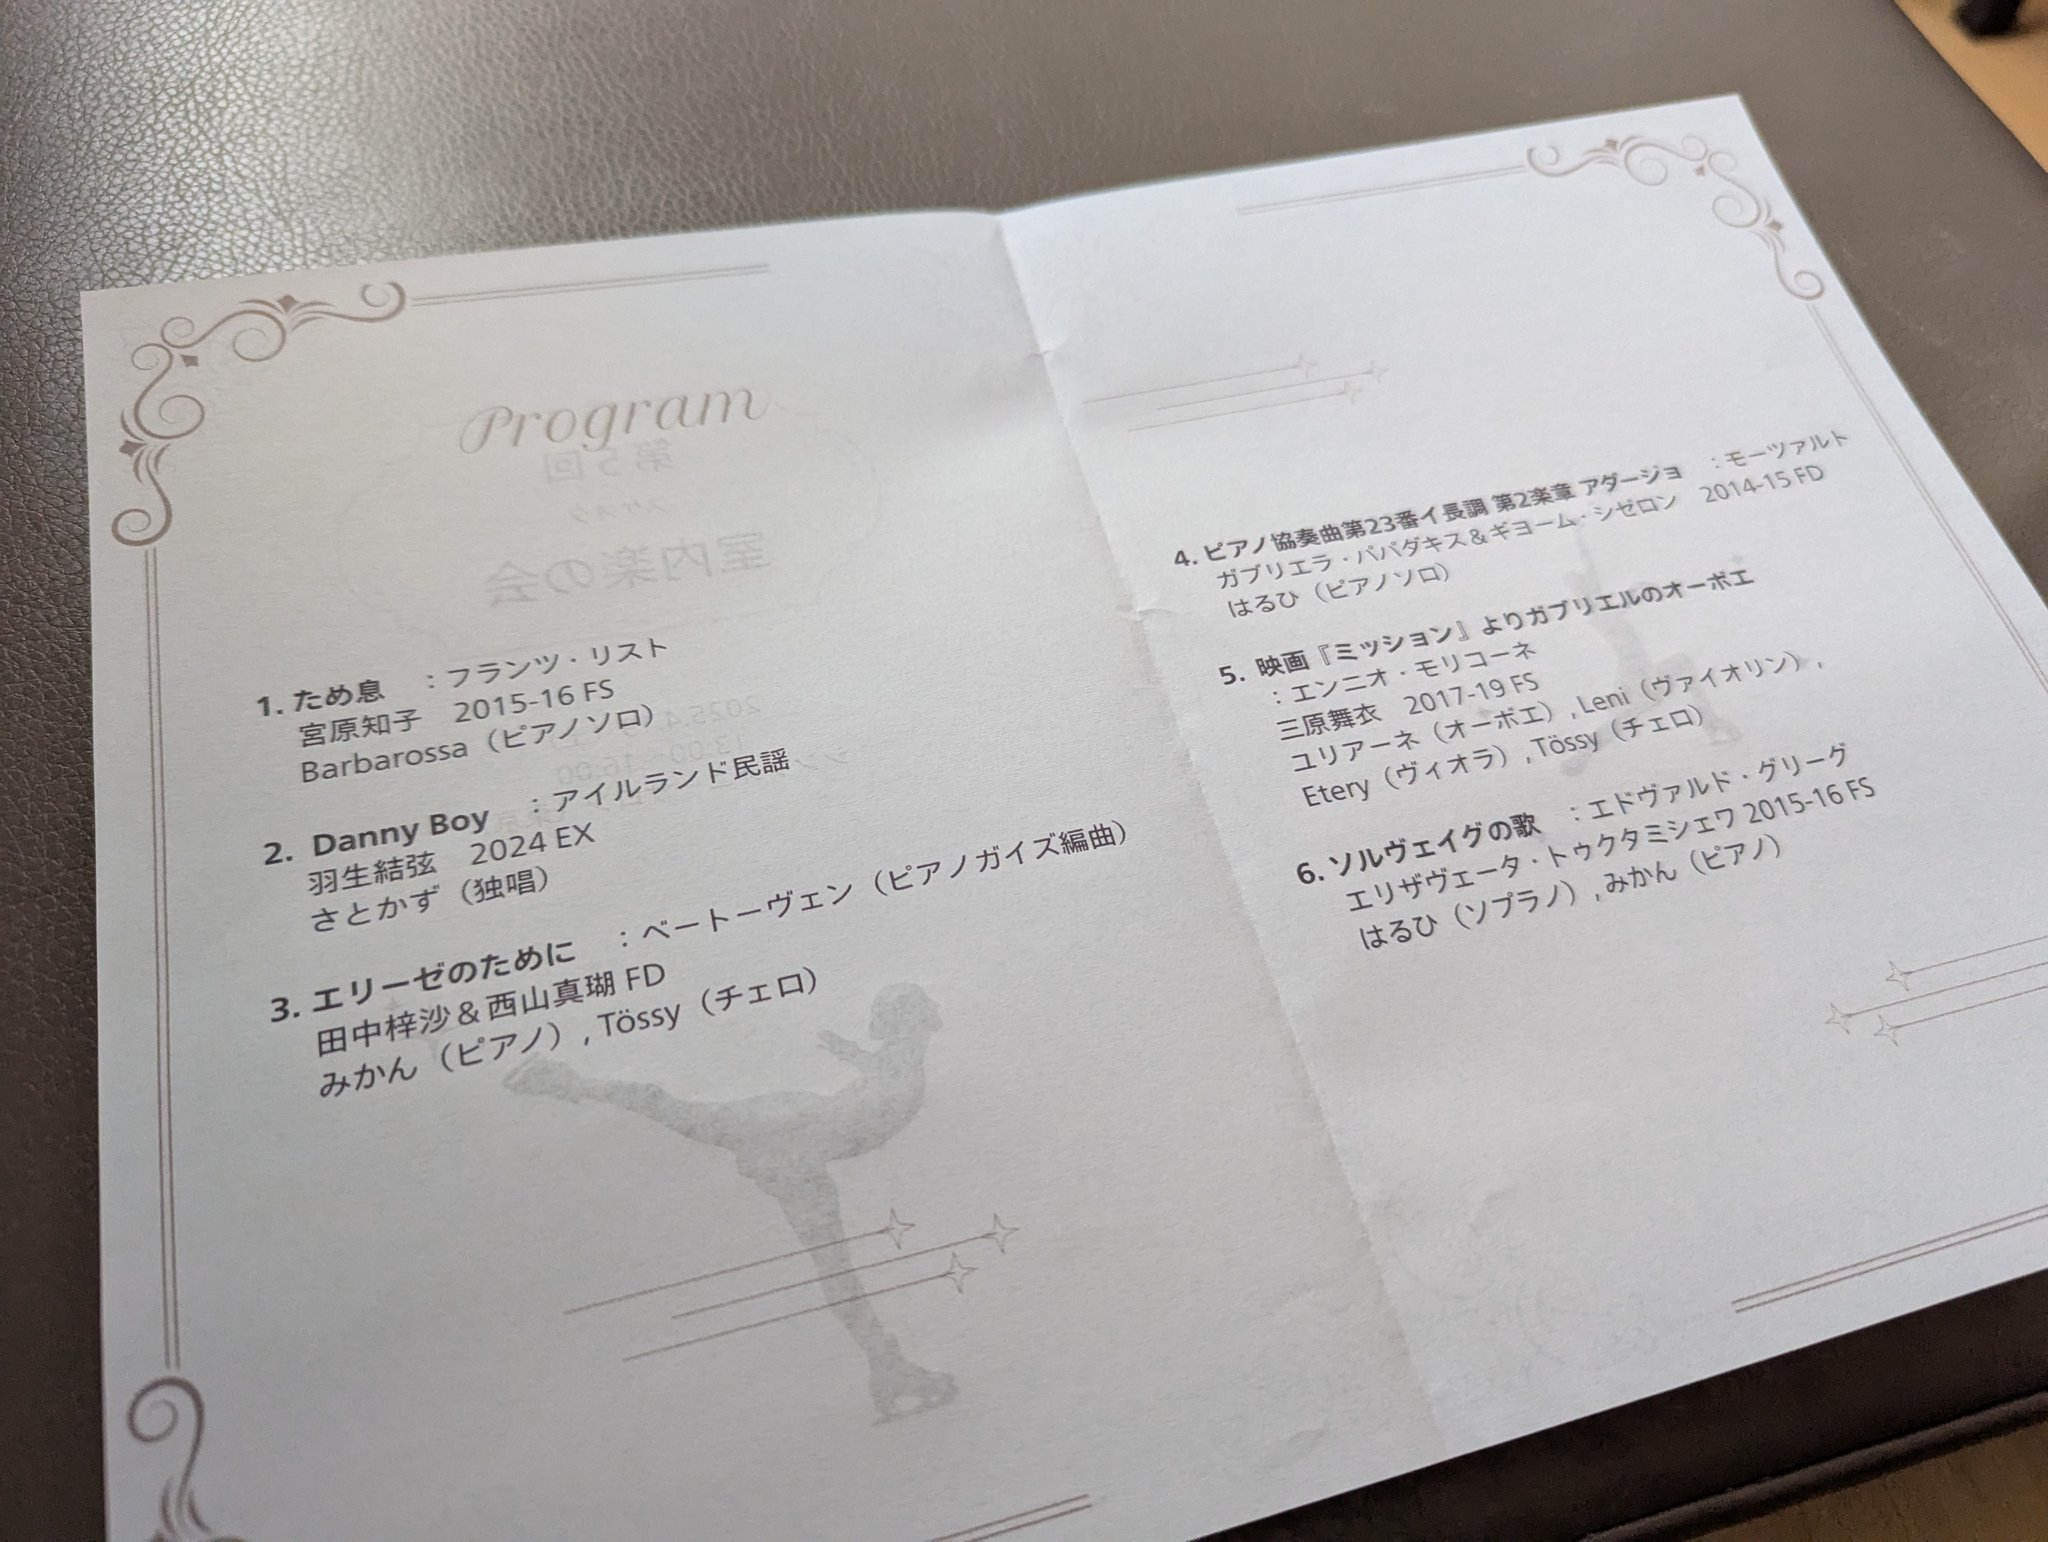 Program
1. ため息　：フランツ・リスト
宮原知子　2015-16 FS
Barbarossa（ピアノソロ）
2. Danny Boy　：アイルランド民謡
羽生結弦　2024 EX
さとかず（独唱）
3. エリーゼのために　：ベートーヴェン（ピアノガイズ編曲）
田中梓沙＆西山真瑚 FD
みかん（ピアノ）, Tössy（チェロ）
4. ピアノ協奏曲第23番イ長調 第2楽章 アダージョ　：モーツァルト
ガブリエラ・パパダキス＆ギヨーム・シゼロン　2014-15 FD
はるひ（ピアノソロ）
5. 映画『ミッション』よりガブリエルのオーボエ
：エンニオ・モリコーネ
三原舞衣　2017-19 FS
ユリアーネ（オーボエ）, Leni（ヴァイオリン）,
Etery（ヴィオラ）, Tössy（チェロ）
6. ソルヴェイグの歌　：エドヴァルド・グリーグ
エリザヴェータ・トゥクタミシェワ 2015-16 FS
はるひ（ソプラノ）, みかん（ピアノ）
第5回
スケオタ
室内楽の会